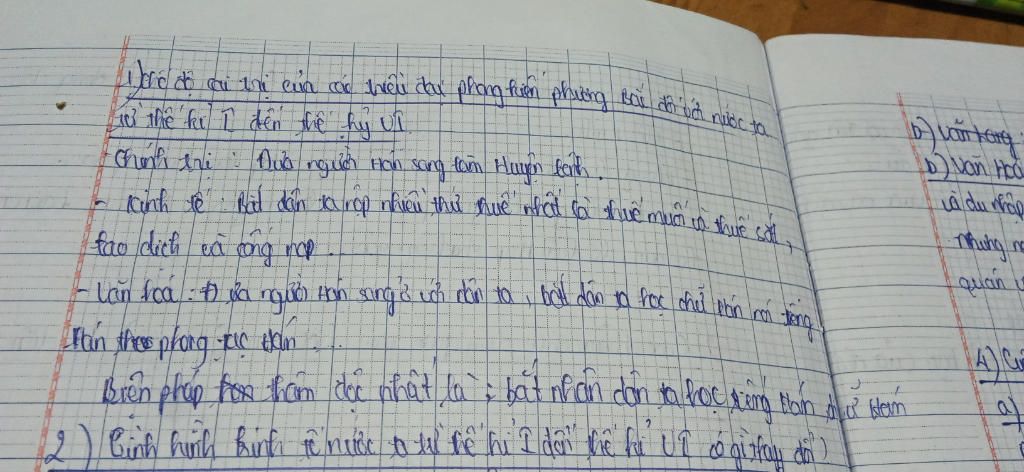 1) Chế độ cai trị của các triều đại phong kiến phương Bắc đối với nước ta
từ thế kỉ I đến thế kỷ VI
- Chính trị : Đưa người Hán sang làm Huyện lệnh.
- Kinh tế : Bắt dân ta nộp nhiều thứ thuế nhất là thuế muối và thuế sắt,
lao dịch và cống nạp .
- Văn hoá : Đưa người Hán sang ở với dân ta, bắt dân ta học chữ Hán nói tiếng
Hán theo phong tục Hán ...
Biện pháp thâm độc nhất là : bắt nhân dân ta học tiếng Hán chữ Hán
2) Tình hình kinh tế nước ta từ thế kỉ I đến thế kỉ VI có gì thay đổi)
b) Văn
b) Văn Hoá
và du nhập
nhưng
quán
4)
a)